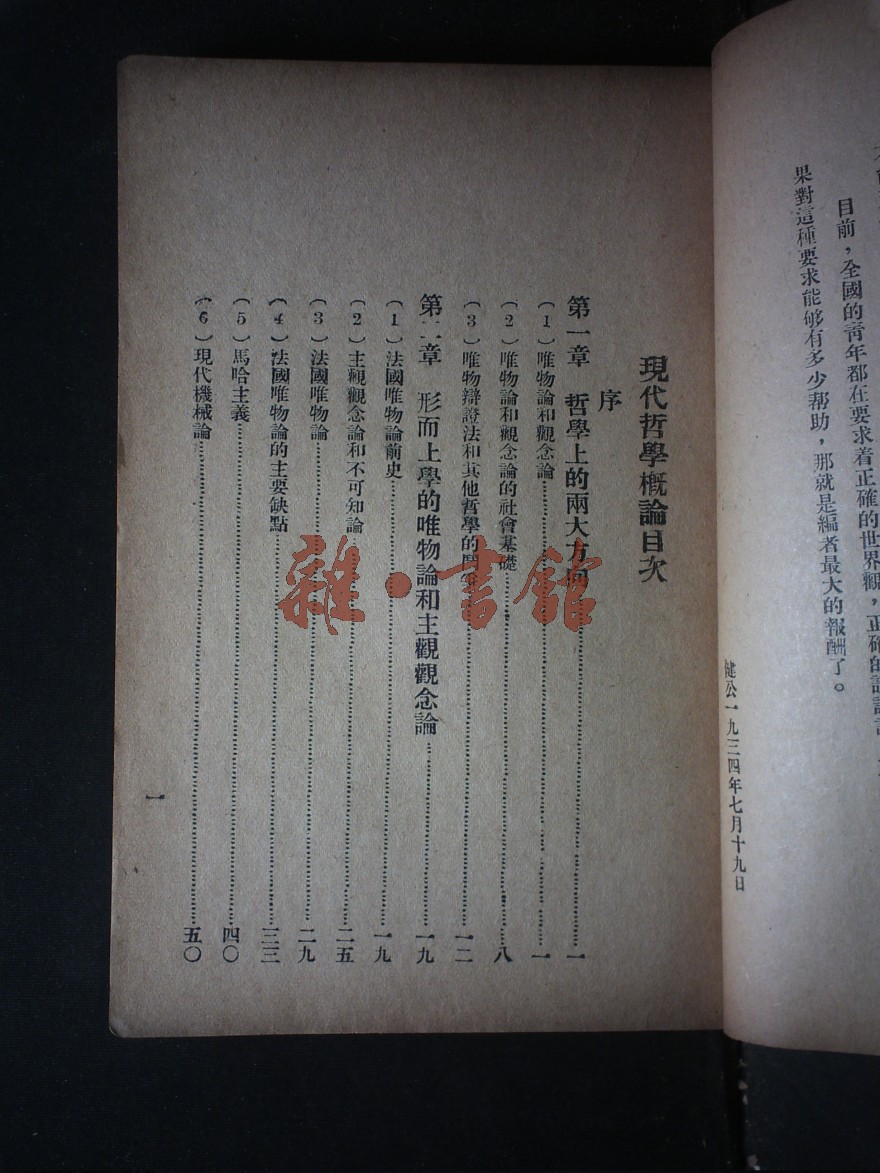 果對這種要求能够有多少帮助，那就是編者最大的報酬了。
目前，全國的靑年都在要求着正確的世界觀，正確的
健公一九三四年七月十九日
現代哲學概論目次
序
第一章　哲學上的兩大方向……一
（1）唯物論和觀念論……一
（2）唯物論和觀念論的社會基礎……八
（3）唯物辯證法和其他哲學的……一二
第二章　形而上學的唯物論和主觀觀念論……一九
（1）法國唯物論前史……一九
（2）主觀觀念論和不可知論……二五
（3）法國唯物論……二九
（4）法國唯物論的主要缺點……三三
（5）馬哈主義……四〇
（6）現代機械論……五〇
一
雜·書館